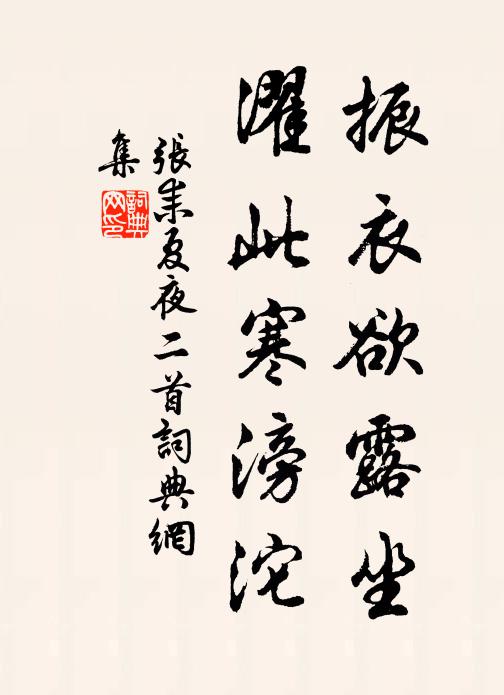 振衣欲露坐
濯此寒滂沱
張耒夏夜二首詞典網
集
詞典網印